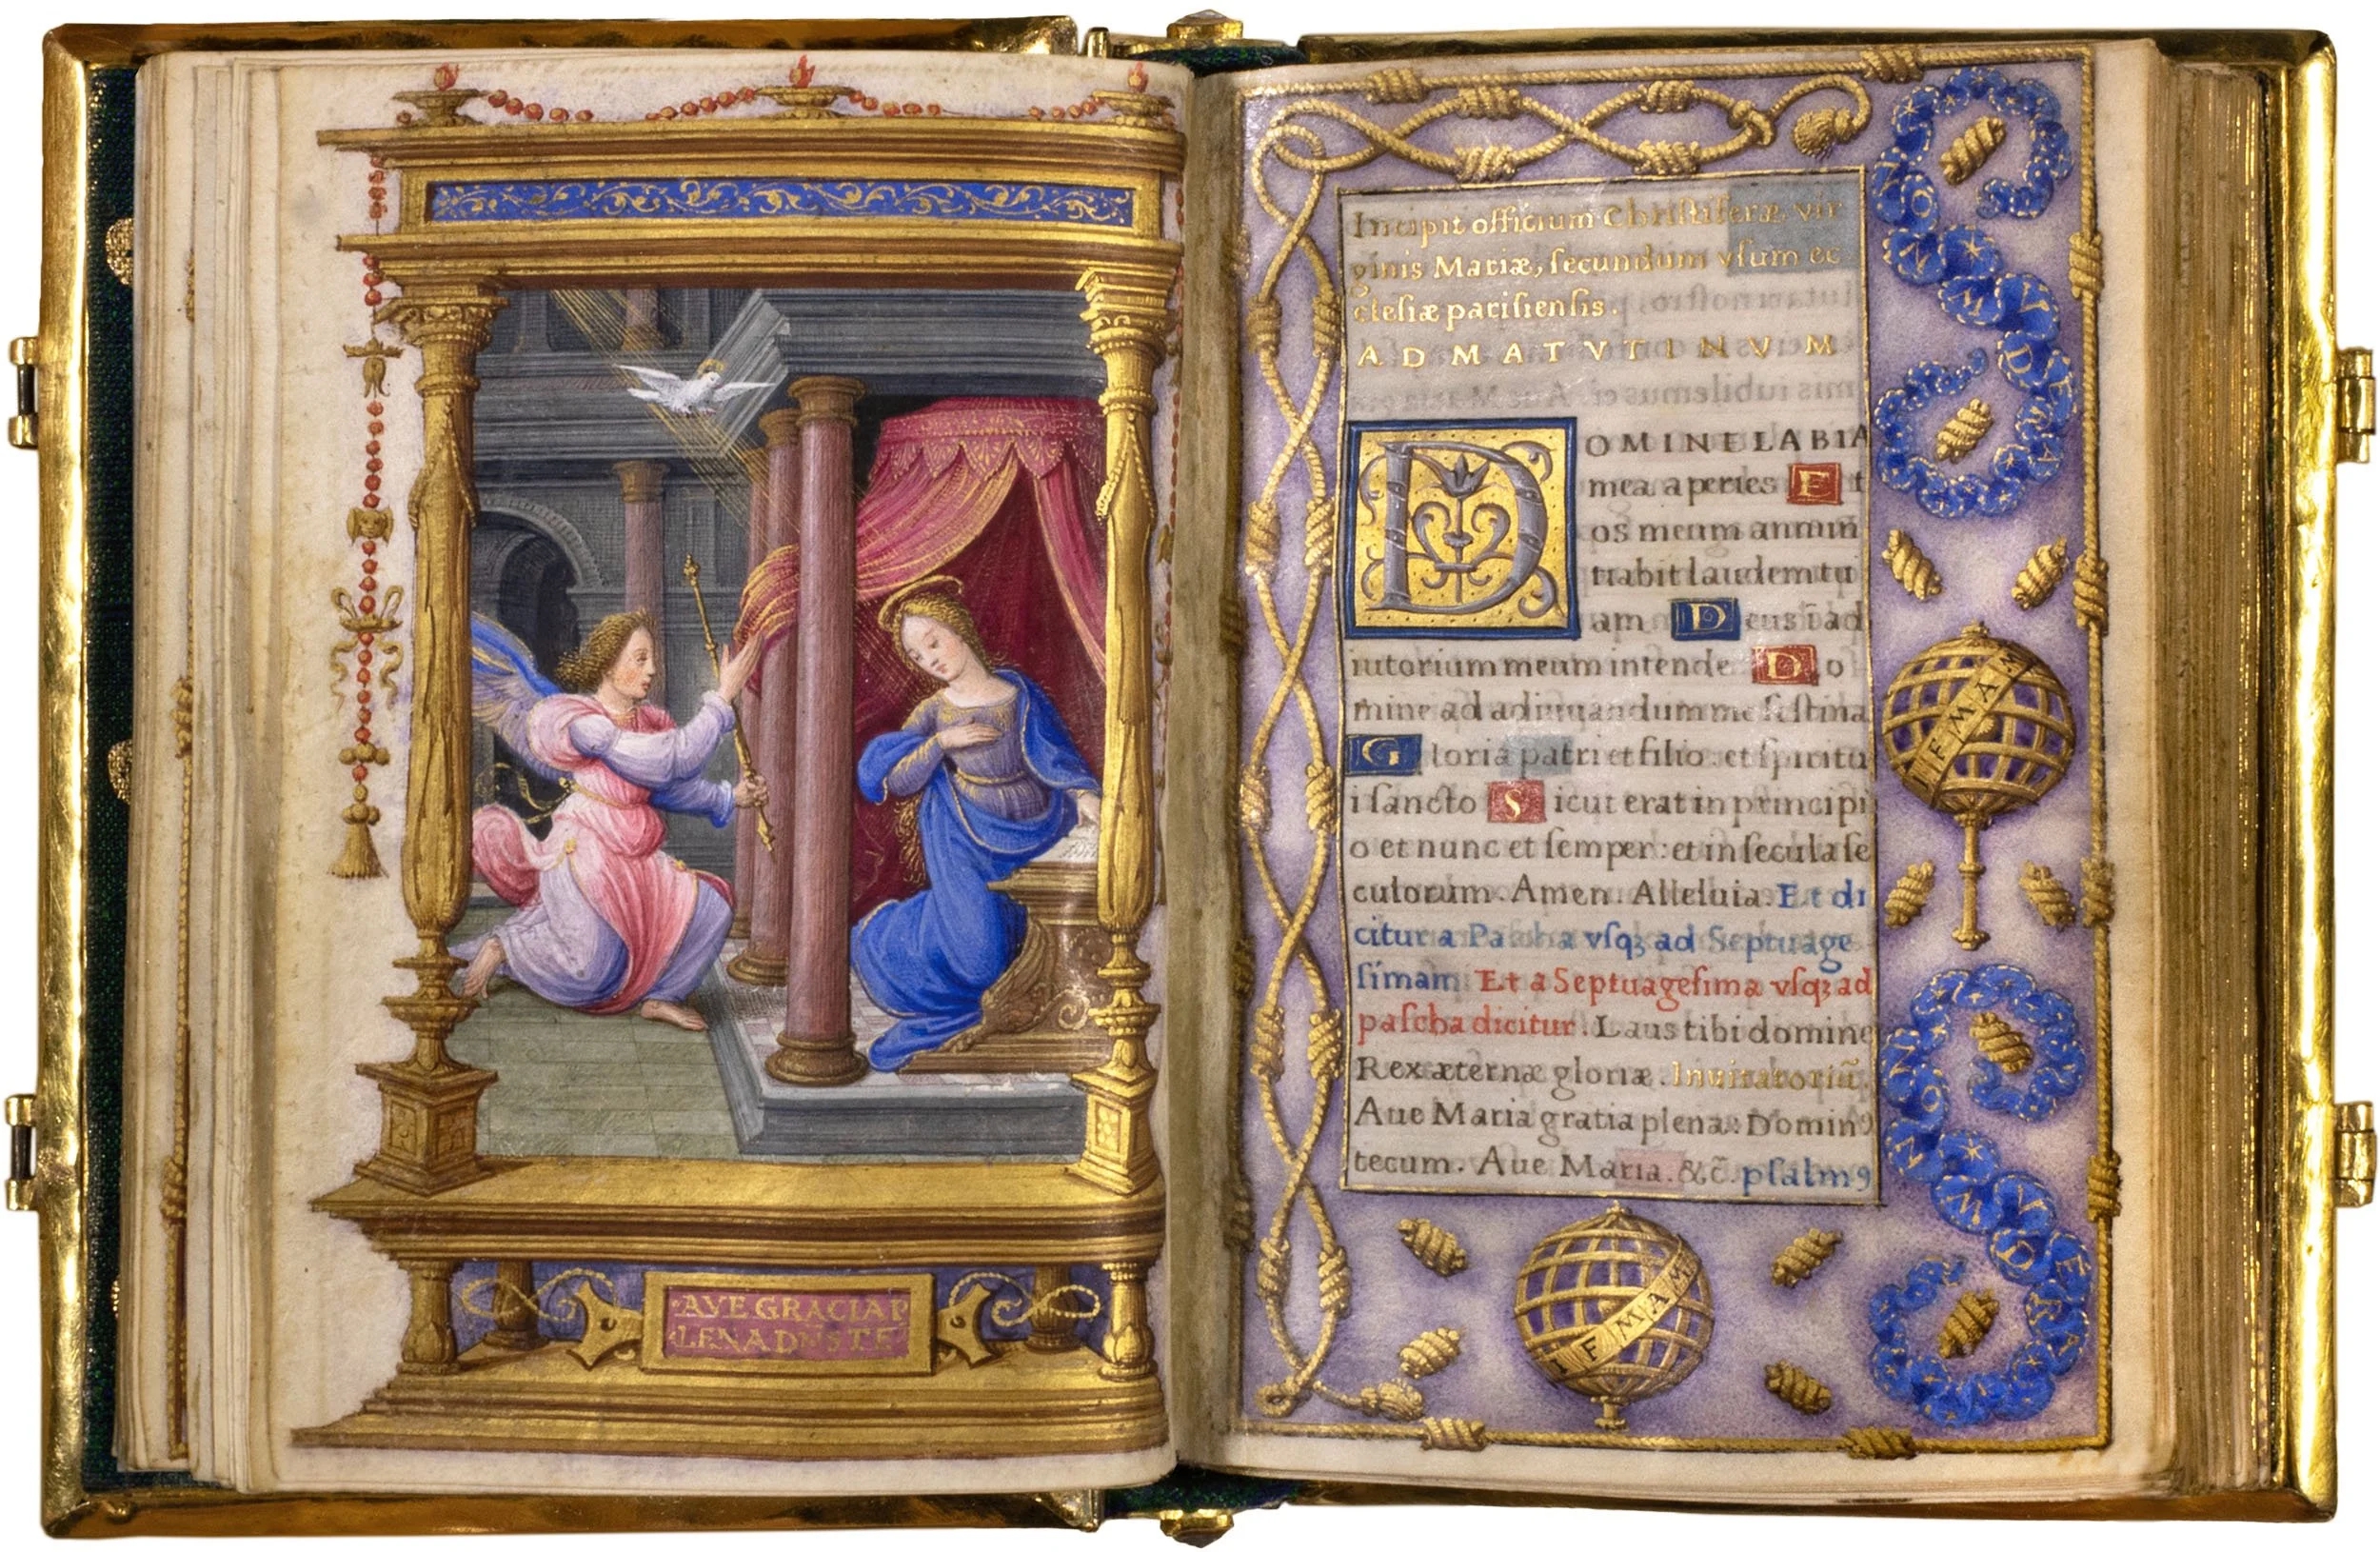 AVE GRACIA P
LENA DNS TE
Incipit officium Christiferæ vir
ginis Mariæ, ſecundum vſum ec
cleſiæ pariſienſis.
AD MATVTINVM
DOMINE LABIA
mea aperies Et
os meum annun
tiabit laudem tu
am Deus ī ad
iutorium meum intende Do
mine ad adiuuandum me feſtina
Gloria patri et filio: et ſpiritu
i ſancto Sicut erat in principi
o et nunc et ſemper: et in ſecula ſe
culorum. Amen. Alleluia. Et di
citur a Paſcha vſqꝫ ad Septuage
ſimam Et a Septuageſima vſqꝫ ad
paſcha dicitur. Laus tibi domine
Rex æternæ gloriæ. Inuitatoriū.
Aue Maria gratia plena: Dominꝰ
tecum. Aue Maria. &c̄. pſalmꝰ
NON MVDERA
IF MA
NON MVDERA
IF MAM